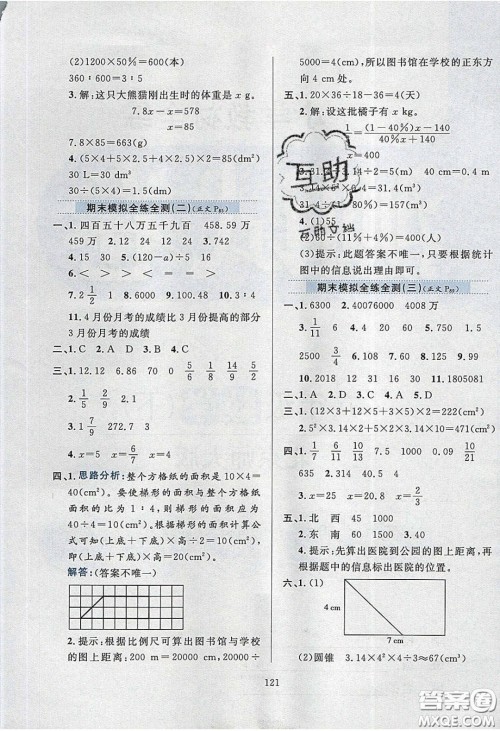 (2)1200×50%=600(本)
360∶600=3∶5
3.解:设这只大熊猫刚出生时的体重是 x g。
7.8x-x=578
x=85
7.8×85=663(g)
4.(5×4+5×2.5+4×2.5)×2=85(dm²)
30 L=30 dm³
30÷(5×4)=1.5(dm)
期末模拟全练全测(二)(正文 P₈₁)
一、1.四百五十八万五千九百 458.59 万
459 万 2.30 24 12 40
4.15 30 5.(120-a)÷5 30
6.< > = > > <
7.2 1/2 1 8.6000 9.24 10.3∶4
11.4 月份月考的成绩比 3 月份提高的部分
3 月份月考的成绩
二、1.C 2.A 3.D 4.A 5.C
三、1.12.12 6.86 70 0 5/6 1/8 14/5 52/9
2.1/5 2/9 30 87
3.1 7/9 272.7 3
4.x=5 x=6/7 x=4
四、1.思路分析:整个方格纸的面积是 10×4=
40(cm²)。要使梯形的面积与整个方格纸
的面积的比为 1∶4,则梯形的面积应为
40÷4=10(cm²)。根据梯形的面积计算公
式可知(上底+下底)×高÷2=10(cm²),
即(上底+下底)×高=20(cm²)。
解答:(答案不唯一)
2.提示:根据比例尺可算出图书馆与学校
的图上距离,200 m=20000 cm,20000÷
5000=4(cm),所以图书馆在学校的正东方
向 4 cm 处。
五、1.20×36÷18-36=4(天)
2.解:设这批橘子有 x kg。
x=400
互助
互助文档
(3)提示:此题答案不唯一,只要根据统计
图中的信息说出理由即可。
期末模拟全练全测(三)(正文 P₈₅)
一、1.6300 2.40076000 4008 万
3.1/11 6 4.4 20 6 40 5.625
2500 3/4 6.> < < = 7.8
10.2018 12 31 4 30 11.1805081
二、1.C 2.A 3.C 4.A 5.D
三、1.(12×3+12×5+3×5)×2=222(cm²)
2.1/3×3.14×(12÷2)²×10×5.4≈2035(g)
四、1.1/7 6/11 10 100 11/15 1/35
3.x=25 x=8 x=0.3
五、1.北 西 45 1000
2.东 南 60 1500
4.提示:先算出医院到公园的图上距离,再
根据题中的信息标出医院的位置。
六、1.(1)
4 cm
7 cm
(2)圆锥 3.14×4²×4÷3≈67(cm³)
121
答案圈
MXQE.COM